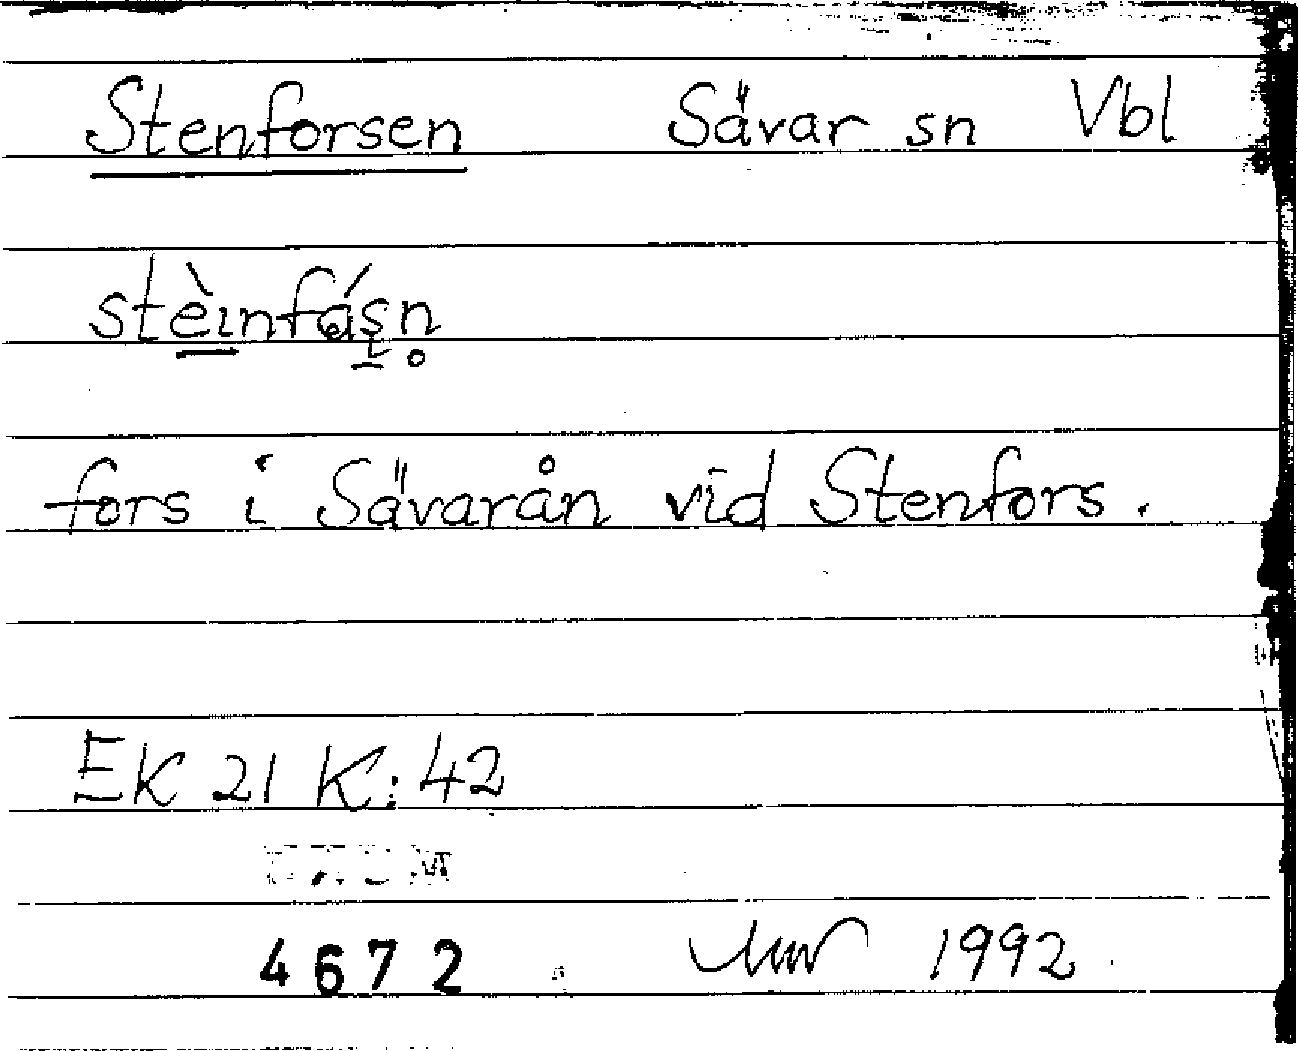 Stenforsen Sävar sn Vbl
stèinfáṣn̥
fors i Sävarån vid Stenfors.
EK 21 K:42
4672 1992